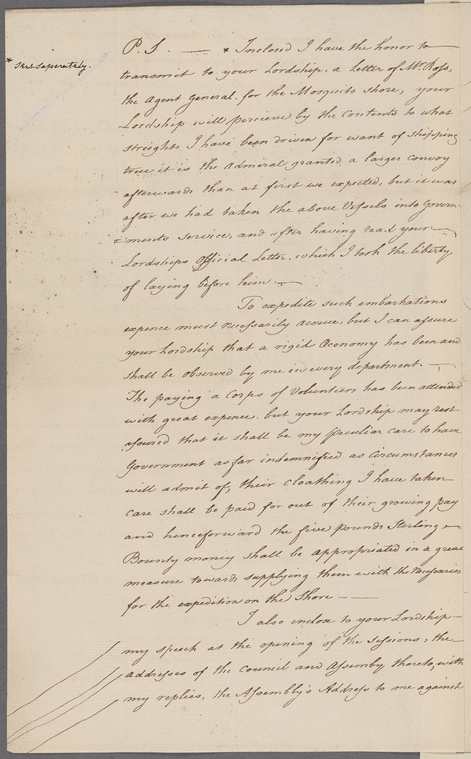 * Sent seperately.
P.S. — * Inclosed I have the honor to
transmit to your Lordship, a Letter of Mr. Ross,
the Agent General for the Mosquito Shore, your
Lordship will perceive by the Contents to what
streights I have been driven for want of Shipping
true it is the Admiral granted a larger Convoy
afterwards than at first we expected, but it was
after we had taken the above Vessels into Govern-
=ments Service, and after having read your
Lordships Official Letter, which I took the liberty
of laying before him —
To expedite such embarkations
expence must necessarily accrue, but I can assure
your Lordship that a rigid Œconomy has been and
shall be observed by me in every department. —
The paying a Corps of Volunteers has been attended
with great expence, but your Lordship may rest
assured that it shall be my peculiar care to have
Government as far indemnified as Circumstances
will admit of, their cloathing I have taken
care shall be paid for out of their growing pay
and henceforward the five pounds Sterling
Bounty money shall be appropriated in a great
measure towards supplying them with the Necessaries
for the expedition on the Shore —
I also inclose to your Lordship
my speech at the opening of the Sessions, the
addresses of the Council and Assembly thereto, with
my replies, the Assembly's Address to me against